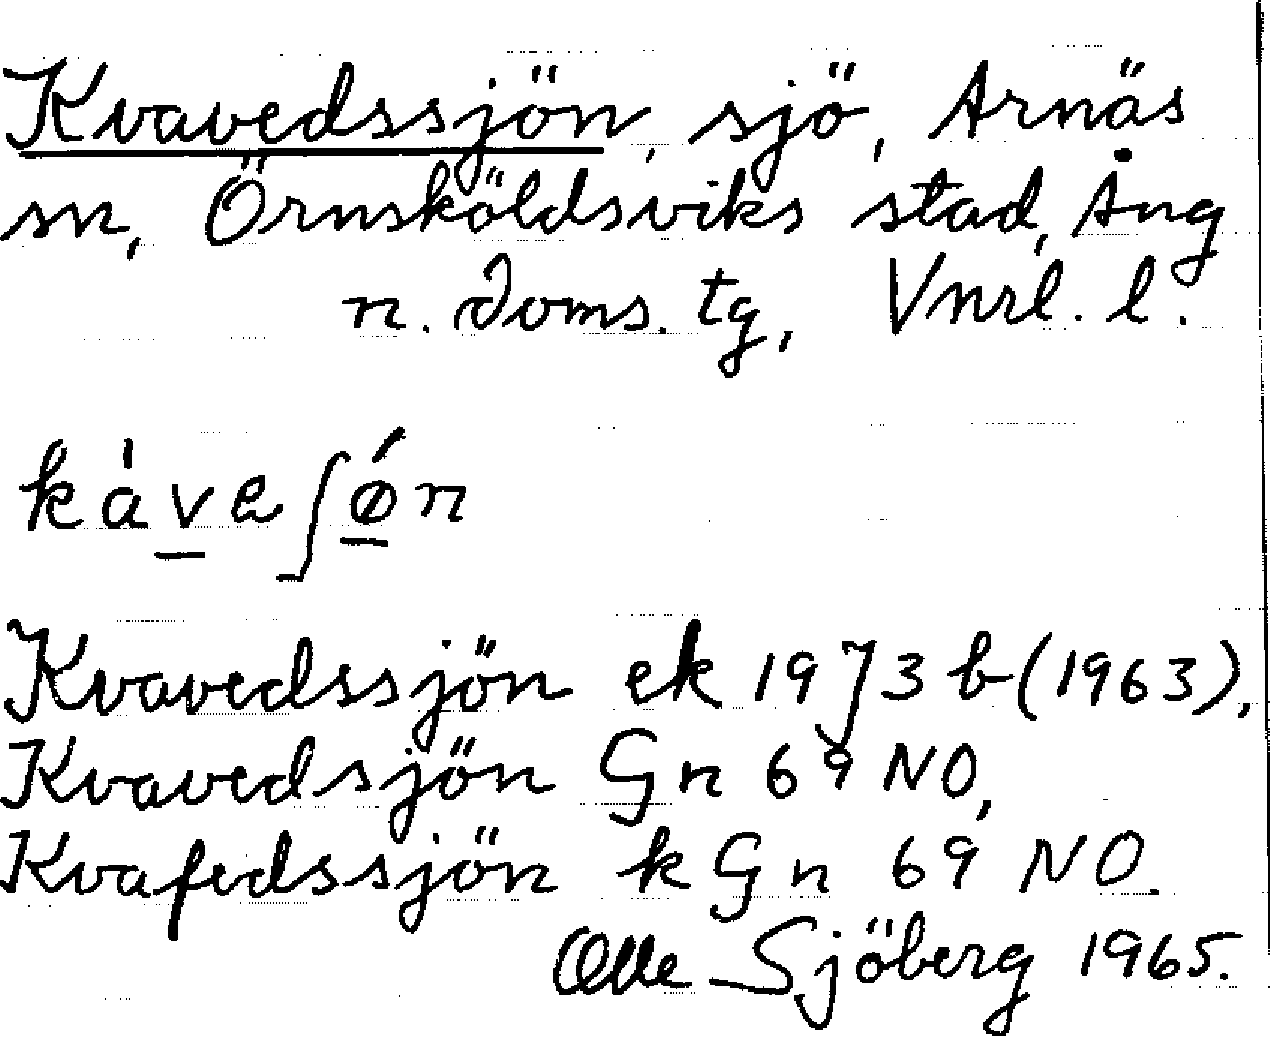 Kvavedssjön, sjö, Arnäs
sn, Örnsköldsviks stad, Ång
n. doms. tg, Vnrl. l.
kàveʃǿn
Kvavedssjön ek 19J3b (1963),
Kvavedsjön Gn 69 NO,
Kvafvedssjön k Gn 69 NO.
Olle Sjöberg 1965.